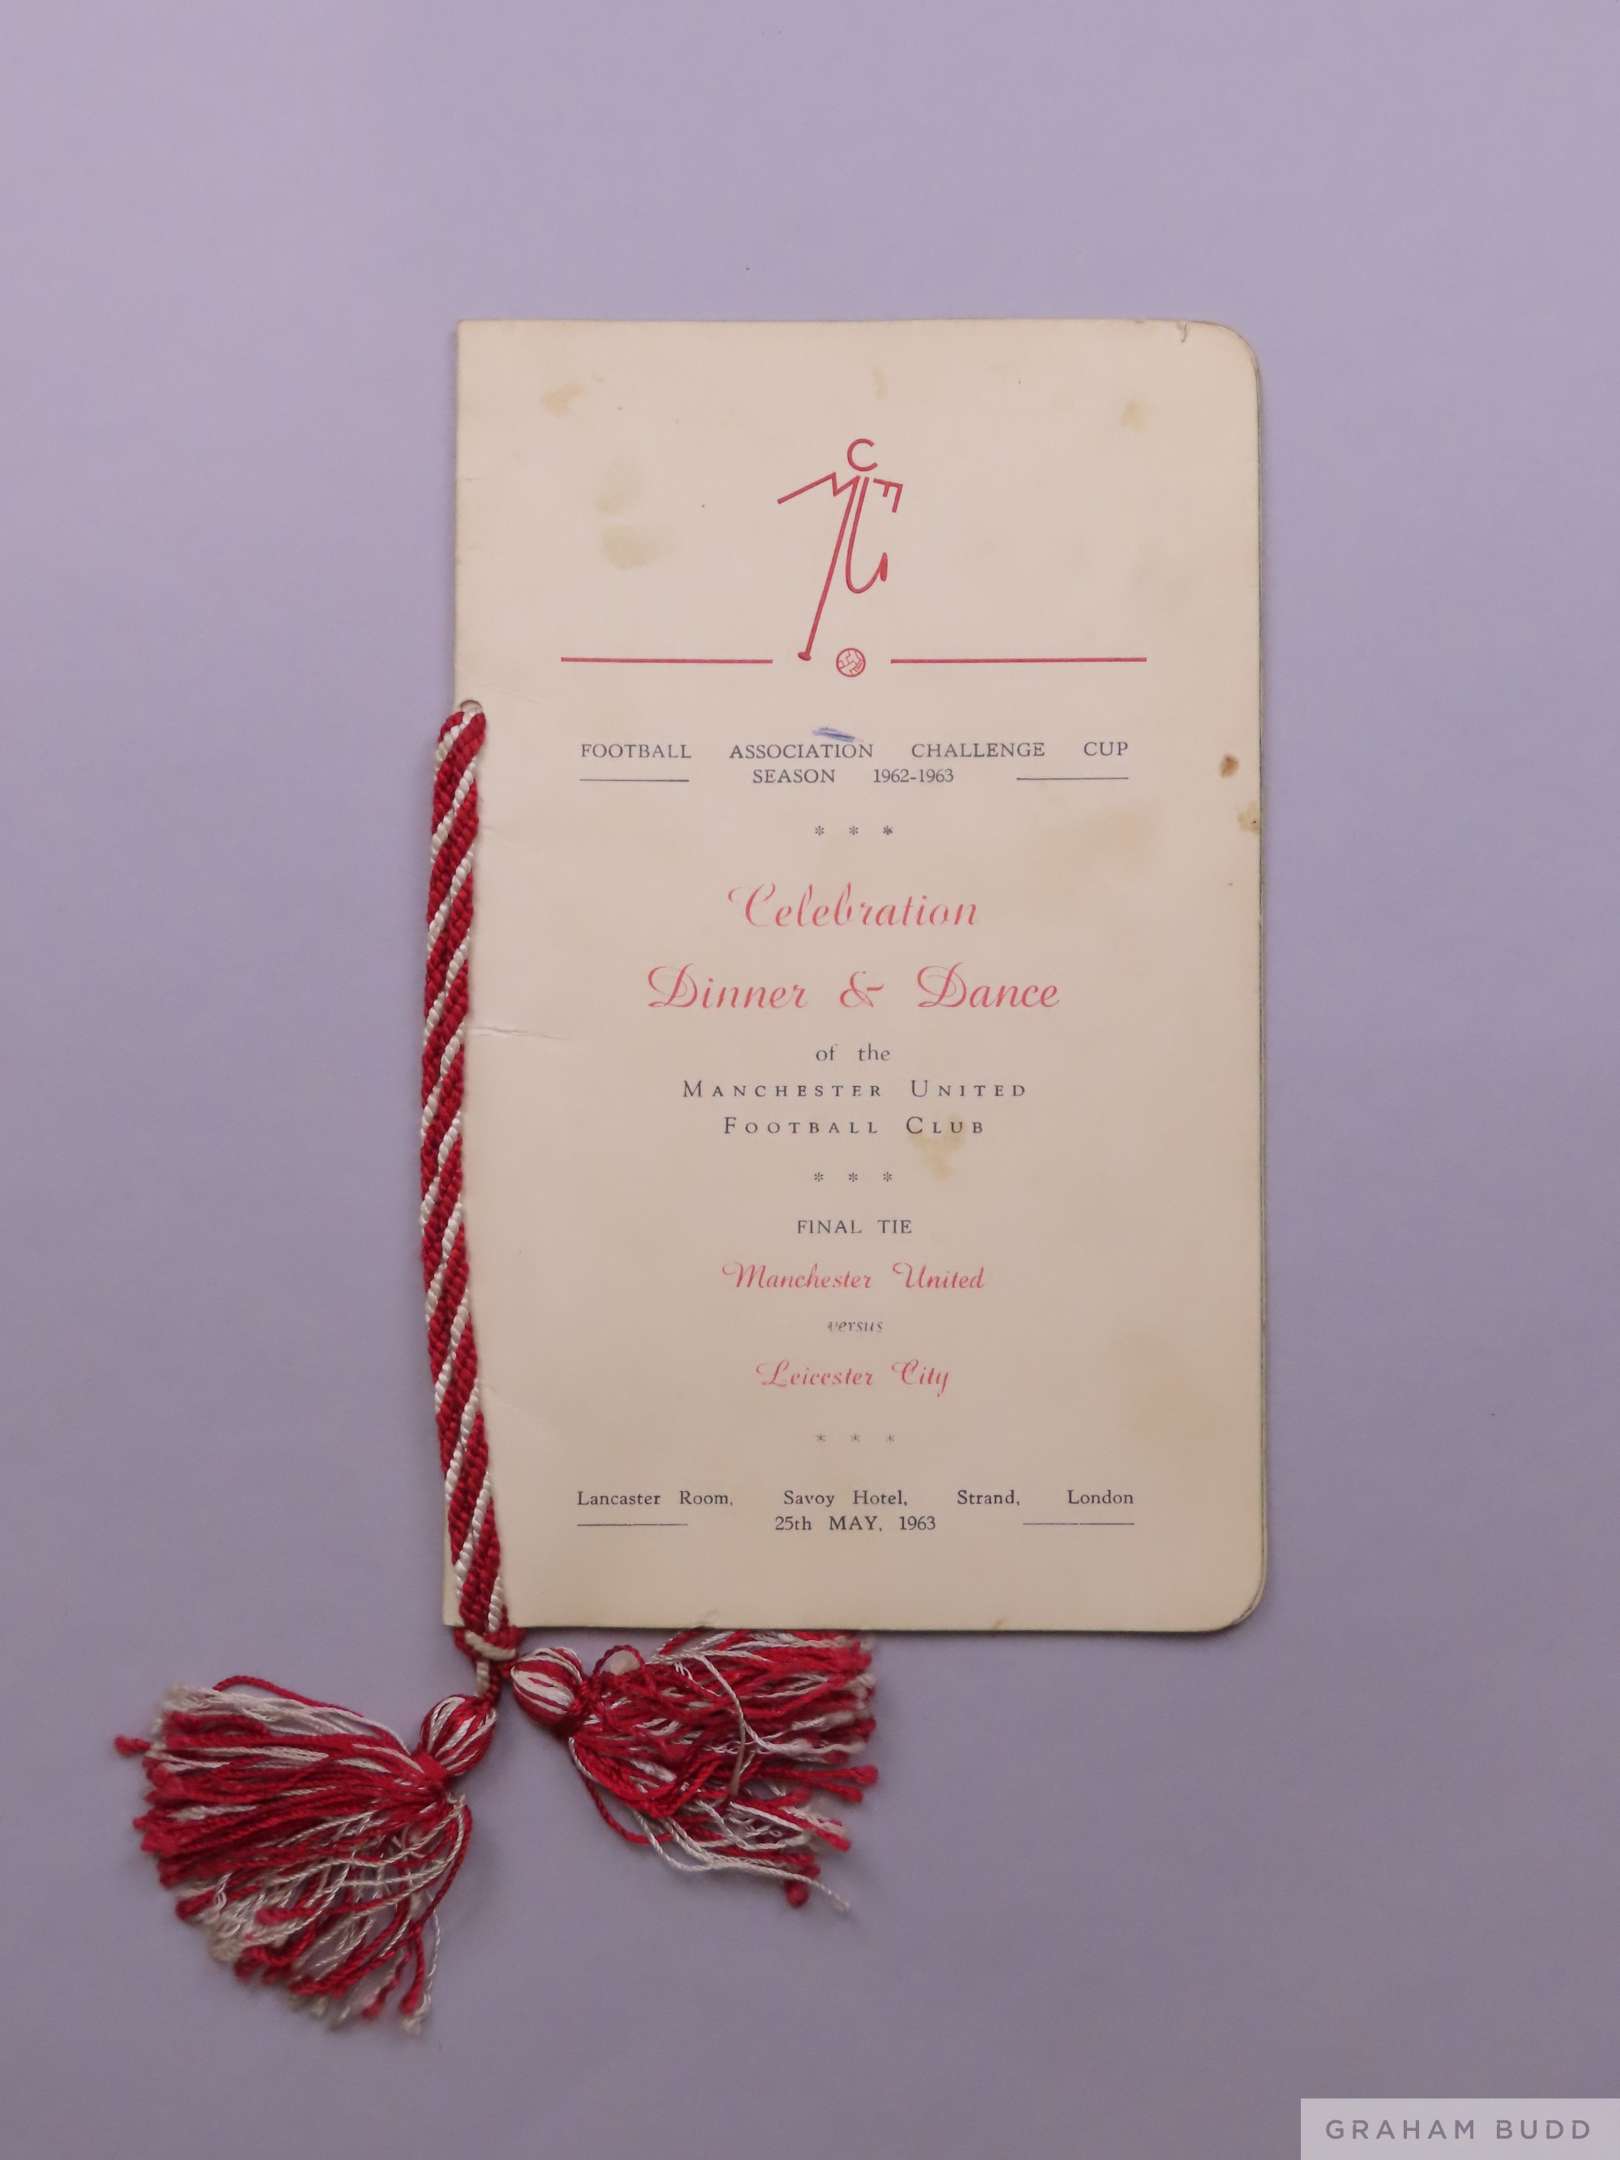 C
M U F
FOOTBALL ASSOCIATION CHALLENGE CUP
SEASON 1962-1963
* * *
Celebration
Dinner & Dance
of the
MANCHESTER UNITED
FOOTBALL CLUB
* * *
FINAL TIE
Manchester United
versus
Leicester City
* * *
Lancaster Room, Savoy Hotel, Strand, London
25th MAY, 1963
GRAHAM BUDD